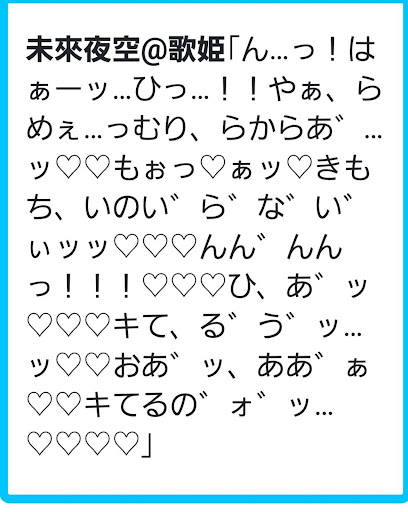 未來夜空@歌姫「ん…っ！は
ぁーッ…ひっ…！！やぁ、ら
めぇ…っむり、らからあ゛…
ッ♡♡もぉっ♡ぁッ♡きも
ち、いのい゛ら゛な゛い゛
ぃッッ♡♡♡んん゛んん
っ！！！♡♡♡ひ、あ゛ッ
♡♡♡キて、る゛う゛ッ…
ッ♡♡おあ゛ッ、ああ゛ぁ
♡♡キてるの゛ォ゛ッ…
♡♡♡♡」